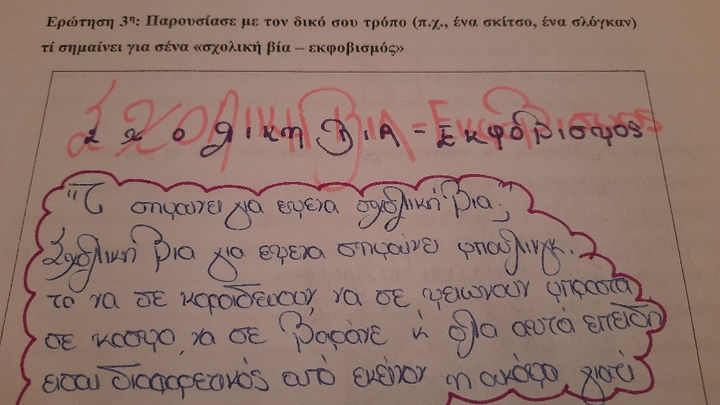 Ερώτηση 3η: Παρουσίασε με τον δικό σου τρόπο (π.χ., ένα σκίτσο, ένα σλόγκαν)
τί σημαίνει για σένα «σχολική βία – εκφοβισμός»
Σχολικη ΒιΑ - Εκφοβισμος
"Τι σημαινει για εμενα σχολική βια;"
Σχολική βια για εμενα σημαίνει μπουλινγκ.
το να σε κοροιδευουν, να σε μειωνουν μπροστα
σε κοσμο, να σε βαράνε κ όλα αυτά επειδή
εισαι διαφορετικός από εκείνον η ακόμα γιατί